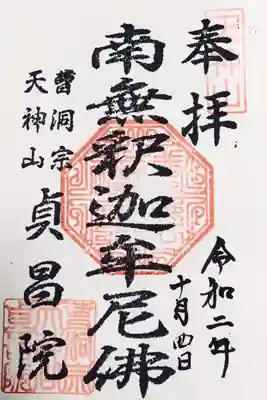 奉拝
令和二年
十月四日
南無釈迦牟尼佛
曹洞宗
天神山
貞昌院